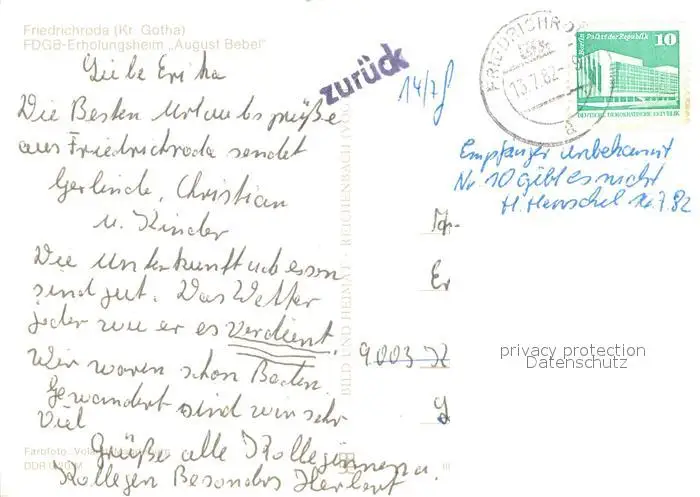 Friedrichroda (Kr. Gotha)
FDGB-Erholungsheim „August Bebel"
Liebe Erika
Die Besten Urlaubsgrüße
aus Friedrichroda sendet
Gerlinde, Christian
u. Kinder
Die Unterkunft und essen
sind gut. Das Wetter
jeder wie er es Verdient.
Wir waren schon Baden.
Gewandert sind wir sehr
Viel
Grüße alle Kolleginnen u.
Kollegen Besonders Herbert
Farbfoto:
DDR
BILD UND HEIMAT · REICHENBACH (VOGTL
zurück
14/7
FRIEDRICHRODA
13.7.82
a
Berlin, Palast der Republik
10
DEUTSCHE DEMOKRATISCHE REPUBLIK
Empfänger unbekannt
Nr 10 gibt es nicht
H. Henschel 16.7.82
Er
9003 K
privacy protection
Datenschutz